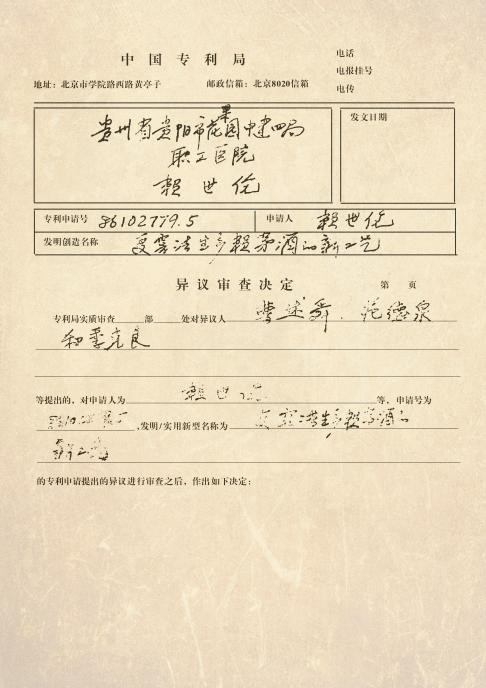 中国专利局
电话
电报挂号
电传
地址：北京市学院路西路黄亭子
邮政信箱：北京8020信箱
发文日期
贵州省贵阳市花果园中建四局
职工医院
赖世伦
专利申请号 86102779.5
申请人 赖世伦
发明创造名称 生多赖茅酒的新工艺
异议审查决定
第 页
专利局实质审查 部 处对异议人 曹述舜、范德泉
和季克良
等提出的，对申请人为 赖世伦 等，申请号为
,发明/实用新型名称为 生多赖茅酒的
新工艺
的专利申请提出的异议进行审查之后，作出如下决定：